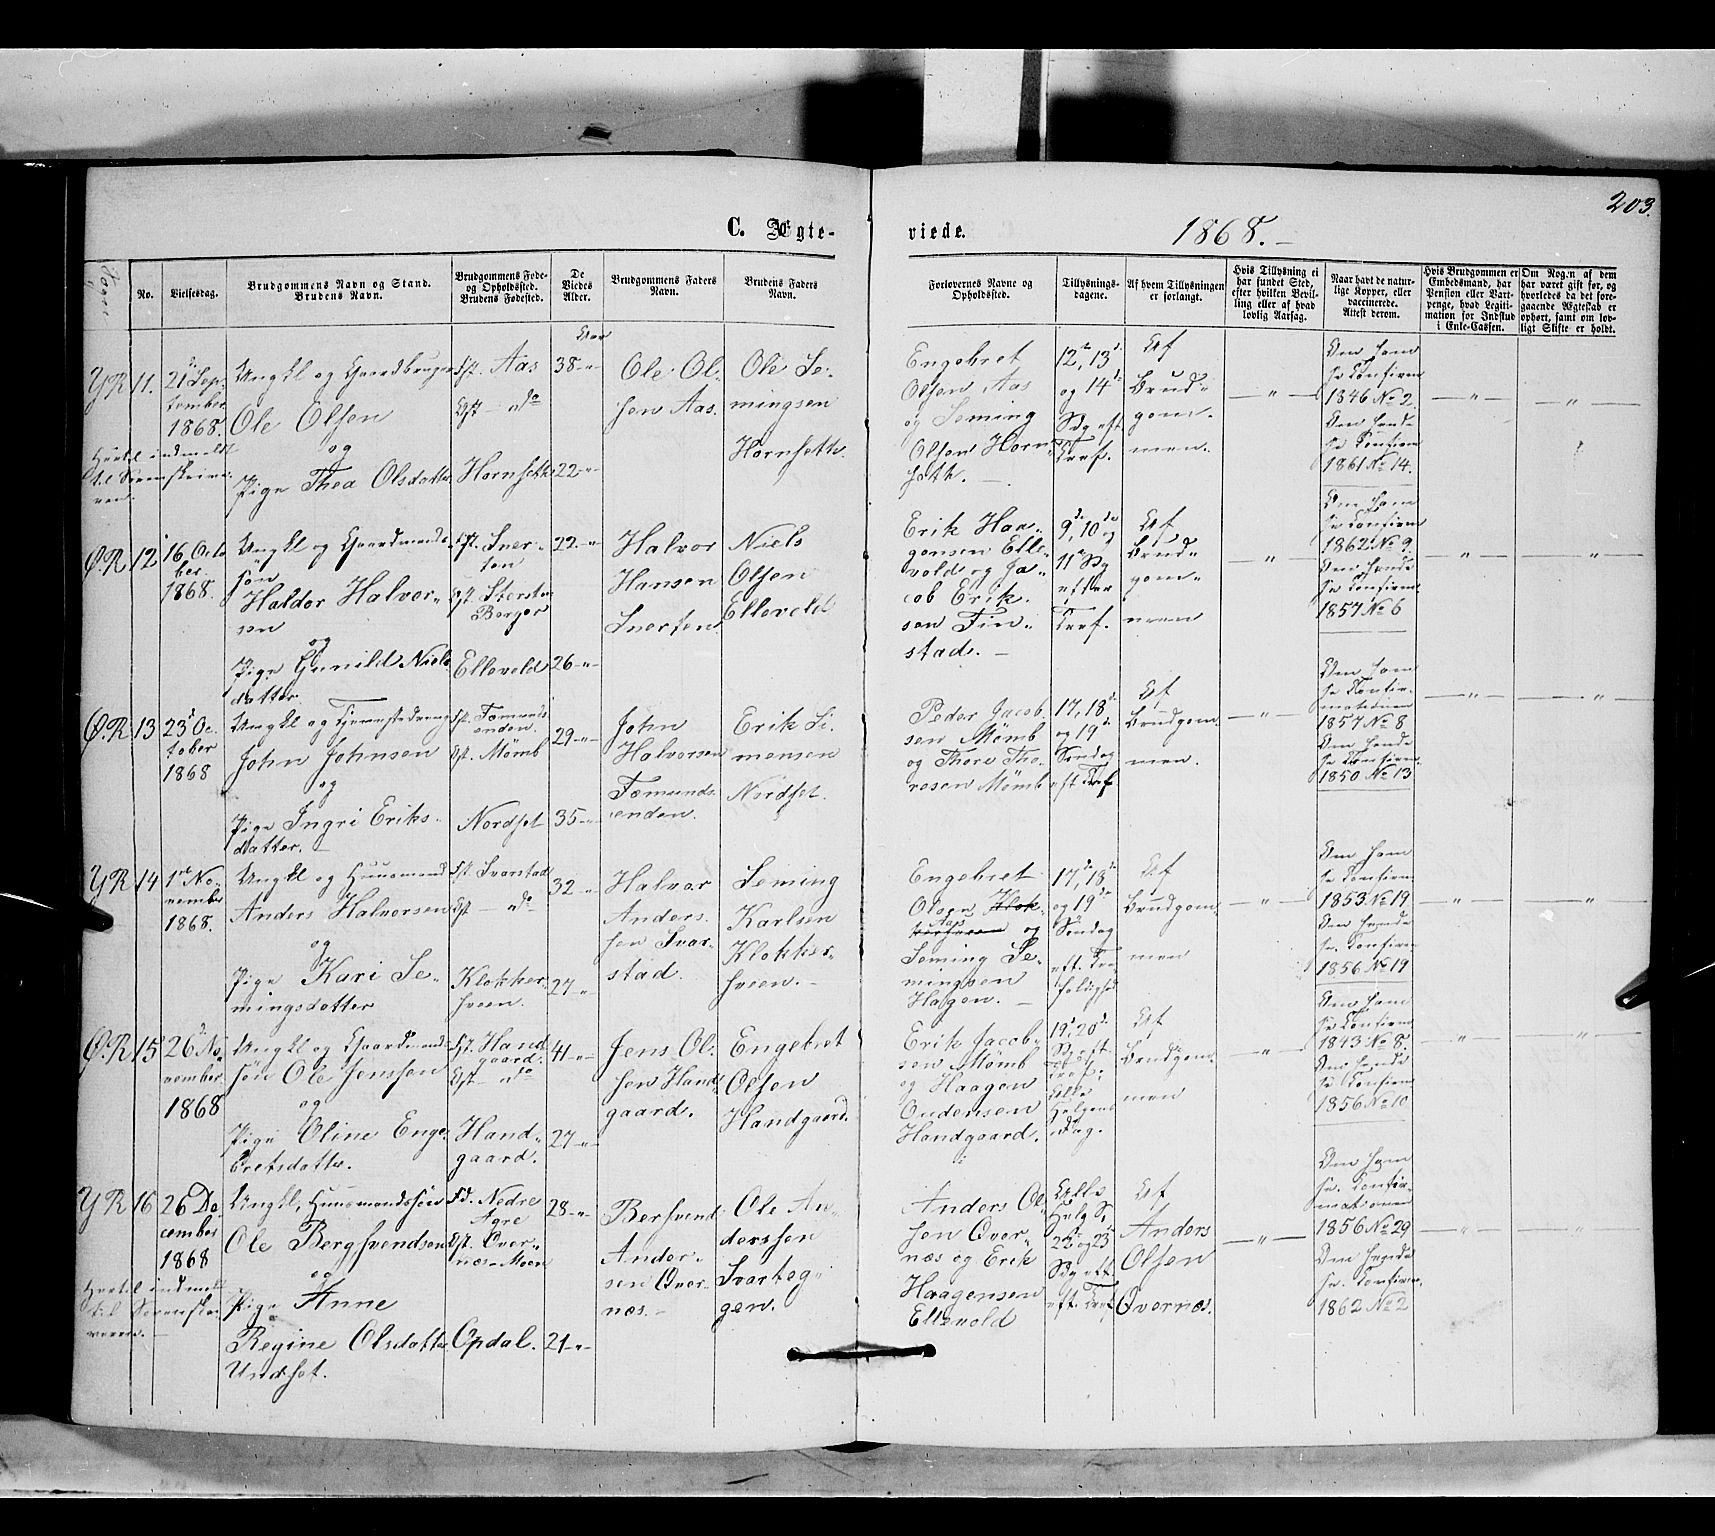 203.
C. Ægte-
viede.
1868.-
No.
Vielsesdag.
Brudgommens Navn og Stand.
Brudens Navn.
Brudgommens Føde-
og Opholdsted.
Brudens Fødested.
De
Viedes
Alder.
Brudgommens Faders
Navn.
Brudens Faders
Navn.
Forlovernes Navne og
Opholdsted.
Tillysnings-
dagene.
Af hvem Tillysningen
er forlangt.
Hvis Tillysning ei
har fundet Sted,
efter hvilken Bevil-
ling eller af hvad
lovlig Aarsag.
Naar havt de natur-
lige Kopper, eller
vaccinerede.
Attest derom.
Hvis Brudgommen er
Embedsmand, har
Pension eller Vart-
penge, hvad Legiti-
mation for Indskud
i Enke-Cassen.
Om Nogen af dem
har været gift før, og
hvorledes da det fore-
gaaende Ægteskab er
ophørt, samt om lov-
ligt Skifte er holdt.
YR
11.
21 Sep-
tember
1868.
Ungkl og Gaardbruger
Ole Olsen
og
Pige Thea Olsdatter
Fst. Aas
Opst - do
Hornseth
Aar
38-"-
22-"-
Ole Ol-
sen Aas.
Ole Se-
mingsen
Hornseth.
Engebret
Olsen Aas
og Seming
Olsen Horn-
seth. -
12te, 13de
og 14de
Sdg eft
Tref.
Af
Brud-
gom-
men.
- " -
Om ham
se Confirm
1846 No 2.
Om hende
se Confirm
1861 No 14.
- " -
- " -
ØR
12
16 Octo
ber.
1868.
Ungkl og Gaardmands-
søn
Haldor Halvor-
sen
og
Pige Gunild Niels-
datter
Ellevold
22-"-
26-"-
Halvor
Hansen
Niels
Olsen
Ellevold
Erik Haa-
gensen Elle-
vold og Ja-
cob Erik-
sen Fin-
stad. -
9de, 10de og
11te Sdg
efter
Tref.
Af
Brud-
gom-
men
- " -
Om ham
se Confirm
1862 No 9.
Om hende
se Confirm.
1857 No 6
- " -
- " -
ØR
13
23de Oc-
tober
1868
John Johnsen
og
Pige Ingri Eriks-
datter. -
Fst. Fæmunds-
enden.
Opst. Mømb
Nordset
29-"-
35-"-
John
Halvorsen
Fæmunds-
enden.
Erik Si-
mensen
Nordset.
Peder Jacob-
sen Mømb
og Thore Tho-
resen Mømb
17, 18de
og 19de
Søndag
eft Tref
Af
Brudgom-
men.
- " -
Om ham
se Confir-
mationen
1857 No 8
Om hende
se Confirm.
1850 No 13
- " -
- " -
YR
14
1ste No-
vember
1868.
Ungkl og Huusmand
Anders Halvorsen
og
Pige Kari Se-
mingsdatter
Fst. Svarstad
Opst - do
Klokker-
sveen.
32-"-
27-"-
Halvor
Anders-
sen Svar-
stad.
Seming
Karlsen
Klokker-
sveen. -
Engebret
Olsen Klok-
kersveen Aas og
Seming Se-
mingsen
Hagen. -
17de, 18de
og 19de
Søndag
eft. Tre-
foldighed
Af
Brudgom-
men
- " -
Om ham
se Confirm
1853 No 19
Om hende
se. Confirm
1856 No 19
- " -
- " -
ØR
15
26de No-
vember
1868
Ungkl og Gaardmands-
søn Ole Jenssen
og
Pige Oline Enge-
bretsdatter.
Fst. Hand-
gaard.
Opst - do
Hand-
gaard.
41-"-
27-"-
Jens Ol-
sen Hand-
gaard.
Engebret
Olsen
Handgaard.
Erik Jacob-
sen Mømb
og Haagen
Oudensen
Handgaard.
19de, 20de
Sdg eft
Tref.
Alle
Helgens
Dag.
Af
Brudgom-
men
- " -
Om ham
se Confirm
1843 No 8.
Om hende
se Confirm
1856 No 10
- " -
- " -
YR
16
26 De-
cember
1868
Ungkl, Huusmandssøn
Ole Bergsvendsen
og
Pige Anne
Regine Olsdatter
Undset.
Fd. Nedre
Agre
Opst. Øver-
næs-Moen
Opdal.
28-"-
21-"-
Bersvend
Ander-
sen Øver-
næs. -
Ole An-
derssen
Svarteg-
gen.
Anders Ol-
sen Øver-
næs og Erik
Haagensen
Ellevold
Alle
Helg S,
22de og 23de
eft. Tref
Af
Anders
Olsen
Øvernæs.
- " -
Om ham
se. Confir-
mationen
1856 No 29
Om hende
se. Confirm.
1862 No 2
- " -
- " -